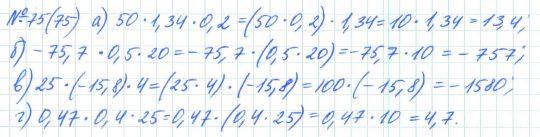 №75(75) а) 50·1,34·0,2=(50·0,2)·1,34=10·1,34=13,4;
б) -75,7·0,5·20=-75,7·(0,5·20)=-75,7·10=-757;
в) 25·(-15,8)·4=(25·4)·(-15,8)=100·(-15,8)=-1580;
г) 0,47·0,4·25=0,47·(0,4·25)=0,47·10=4,7.